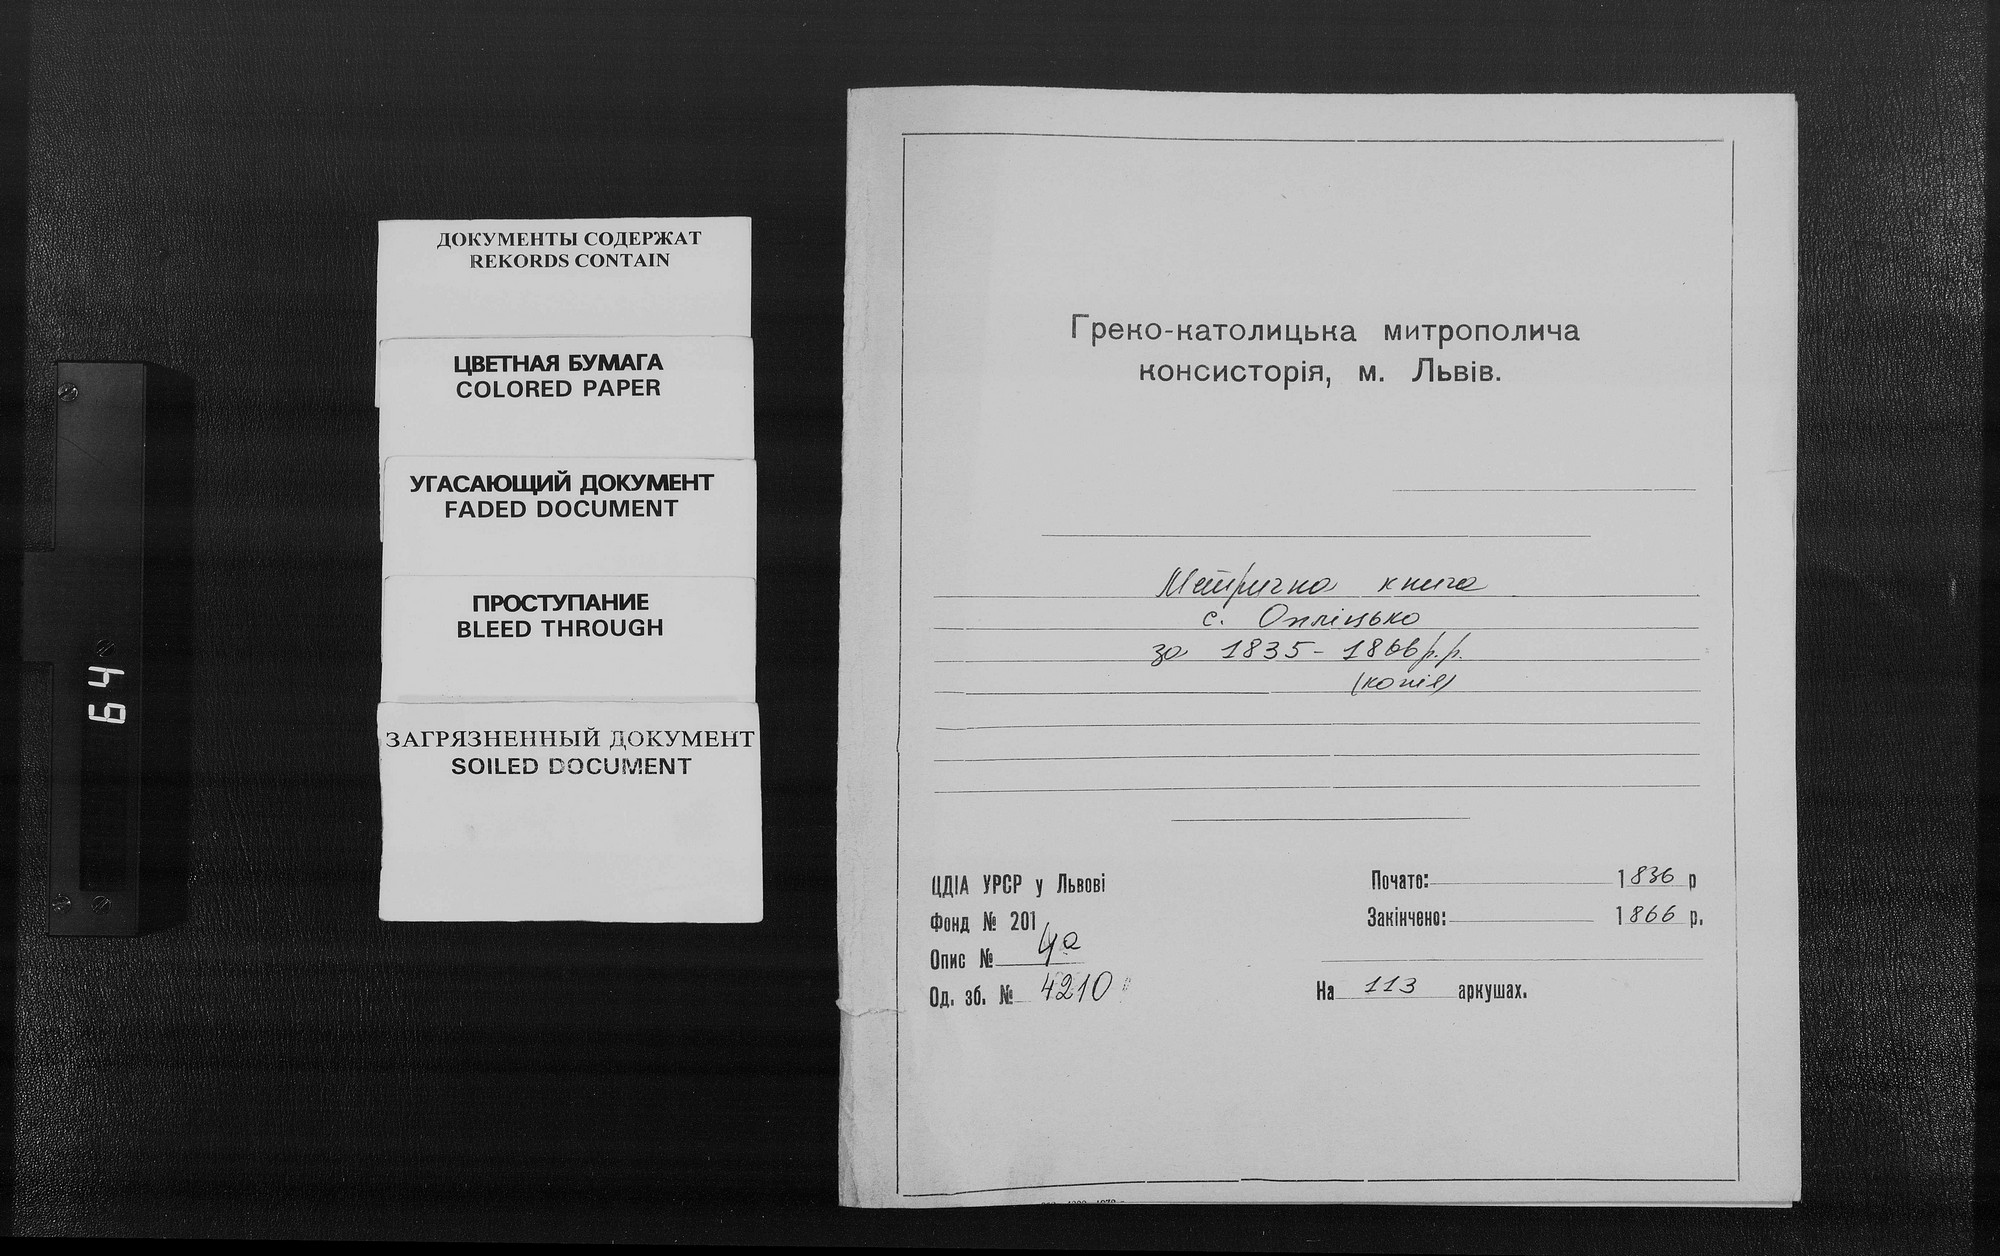 ДОКУМЕНТЫ СОДЕРЖАТ
REKORDS CONTAIN
ЦВЕТНАЯ БУМАГА
COLORED PAPER
УГАСАЮЩИЙ ДОКУМЕНТ
FADED DOCUMENT
ПРОСТУПАНИЕ
BLEED THROUGH
ЗАГРЯЗНЕННЫЙ ДОКУМЕНТ
SOILED DOCUMENT
64
Греко-католицька митрополича
консисторія, м. Львів.
Метрична книга
с. Опліцько
за 1835-1866 р.р.
(копія)
ЦДІА УРСР у Львові
Фонд № 201
Опис № 4а
Од. зб. № 4210
Почато: 1836 р
Закінчено: 1866 р.
На 113 аркушах.